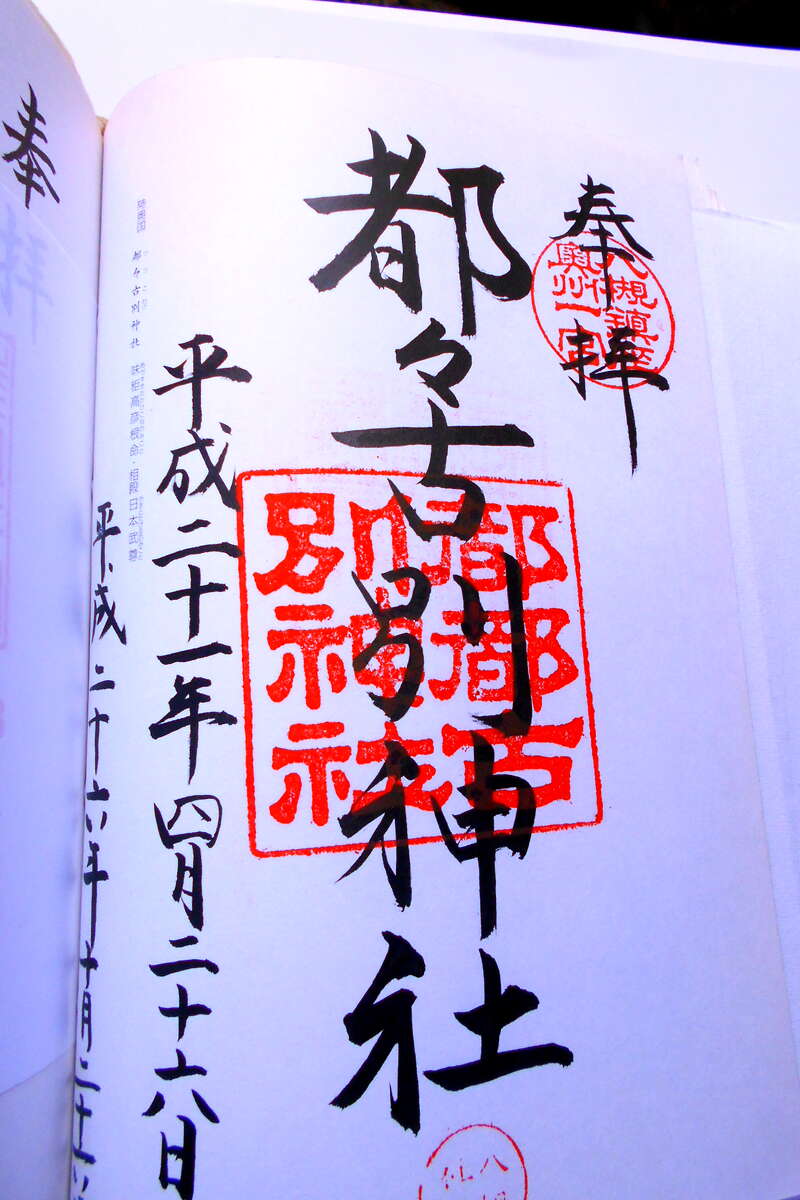 奉拝
八槻鎮座
奥州一宮
都々古別神社
都都古
別神社
平成二十一年四月二十六日
都々古別神社
味耜高彦根命・相殿日本武尊
平成二十六年十月二十
奉
拝